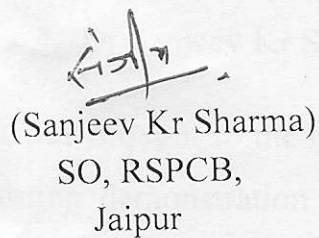 संजीव
(Sanjeev Kr Sharma)
SO, RSPCB,
Jaipur